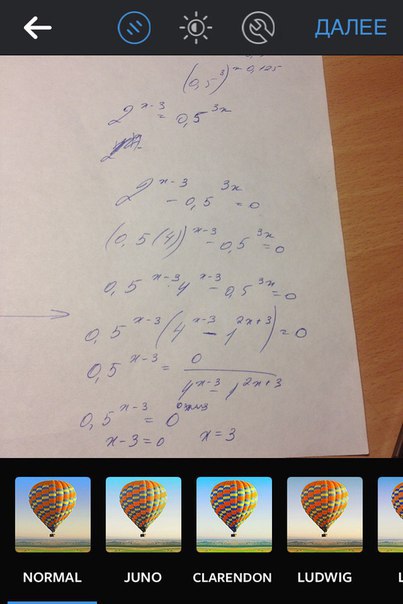 ДАЛЕЕ
(0,5³)ˣ = 0,125
2ˣ⁻³ = 0,5³ˣ
2ˣ⁻³ - 0,5³ˣ = 0
(0,5(4))ˣ⁻³ - 0,5³ˣ = 0
0,5ˣ⁻³ 4ˣ⁻³ - 0,5³ˣ = 0
0,5ˣ⁻³(4ˣ⁻³ - 1²ˣ⁺³) = 0
0,5ˣ⁻³ = 0 / (4ˣ⁻³ - 1²ˣ⁺³)
0,5ˣ⁻³ = 0
x-3=0 x=3
NORMAL JUNO CLARENDON LUDWIG L